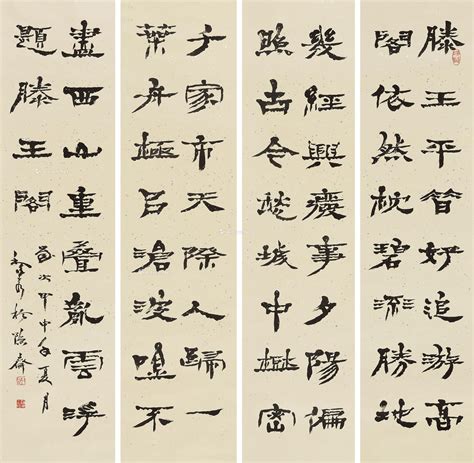 滕王平昔好追游高
閣依然枕碧流勝地
幾經興廢事夕陽偏
照古今愁城中樹密
千家市天際人歸一
葉舟極目滄波吟不
盡西山重疊亂雲浮
題滕王閣
歲次甲申年夏月